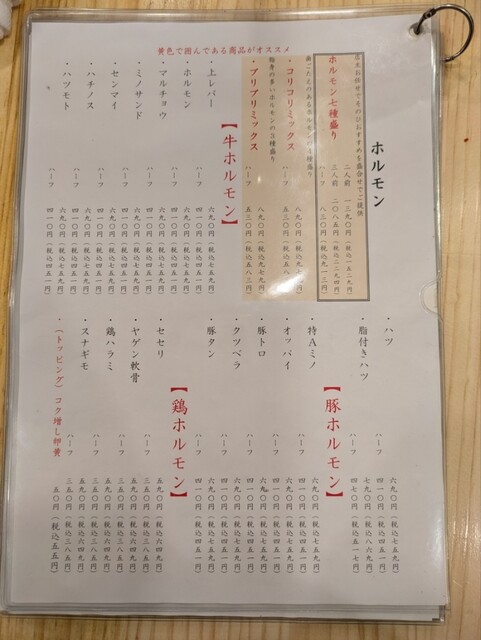 黄色で囲んである商品がオススメ
ホルモン
店主お任せでその日おすすめを盛合せでご提供
ホルモン七種盛り
二人前 一三九〇円(税込一五二九円)
三人前 二〇八五円(税込二二九四円)
ハーフ 八三〇円(税込九一三円)
歯ごたえのあるホルモンの 種盛り
・コリコリミックス 八九〇円(税込九七九円)
ハーフ 五三〇円(税込五八三円)
脂身の多いホルモンの3種盛り
・プリプリミックス 八九〇円(税込九七九円)
ハーフ 五三〇円(税込五八三円)
【牛ホルモン】
・上レバー 六九〇円(税込七五九円)
ハーフ 四一〇円(税込四五一円)
・ホルモン 六九〇円(税込七五九円)
ハーフ 四一〇円(税込四五一円)
・マルチョウ 六九〇円(税込七五九円)
ハーフ 四一〇円(税込四五一円)
・ミノサンド 六九〇円(税込七五九円)
ハーフ 四一〇円(税込四五一円)
・センマイ 六九〇円(税込七五九円)
ハーフ 四一〇円(税込四五一円)
・ハチノス 六九〇円(税込七五九円)
ハーフ 四一〇円(税込四五一円)
・ハツモト 六九〇円(税込七五九円)
ハーフ 四一〇円(税込四五一円)
・ハツ 六九〇円(税込七五九円)
ハーフ 四一〇円(税込四五一円)
・脂付きハツ 七九〇円(税込八六九円)
ハーフ 四七〇円(税込五一七円)
【豚ホルモン】
・特Aミノ 六九〇円(税込七五九円)
ハーフ 四一〇円(税込四五一円)
・オッパイ 六九〇円(税込七五九円)
ハーフ 四一〇円(税込四五一円)
・豚トロ 六九〇円(税込七五九円)
ハーフ 四一〇円(税込四五一円)
・クツベラ 六九〇円(税込七五九円)
ハーフ 四一〇円(税込四五一円)
・豚タン 六九〇円(税込七五九円)
ハーフ 四一〇円(税込四五一円)
【鶏ホルモン】
・セセリ 五九〇円(税込六四九円)
ハーフ 三五〇円(税込三八五円)
・ヤゲン軟骨 五九〇円(税込六四九円)
ハーフ 三五〇円(税込三八五円)
・鶏ハラミ 五九〇円(税込六四九円)
ハーフ 三五〇円(税込三八五円)
・スナギモ 五九〇円(税込六四九円)
ハーフ 三五〇円(税込三八五円)
・(トッピング)コク増し卵黄 五〇円(税込五五円)